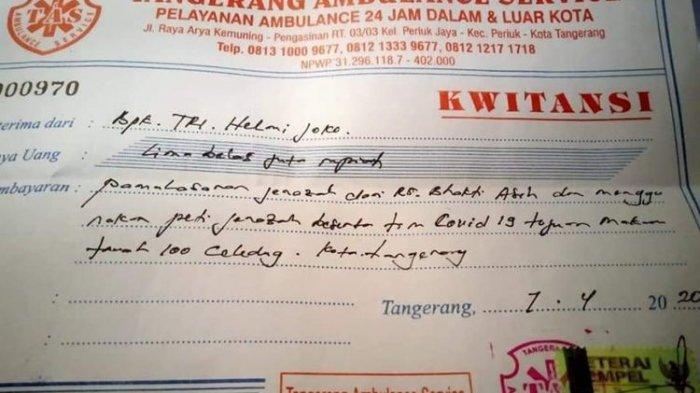 TANGERANG AMBULANCE SERVICE
PELAYANAN AMBULANCE 24 JAM DALAM & LUAR KOTA
Jl. Raya Arya Kemuning - Pengasinan RT. 03/03 Kel. Periuk Jaya - Kec. Periuk - Kota Tangerang
Telp. 0813 1000 9677, 0812 1333 9677, 0812 1217 1718
NPWP 31.296.118.7 - 402.000
TAS
AMBULANCE SERVICE
000970
KWITANSI
erima dari : Bpk. TRI. Helmi Joko.
ya Uang : Lima belas juta rupiah
mbayaran : pamakasaran jenazah dari RS. Bhakti Asih dan menggu
nakan peti jenazah beserta tim Covid 19 tujuan makam
tanah 100 Celedug. Kota tangerang
Tangerang, 7 . 4 20 20
TANGERA
TAS
METERAI
TEMPEL
Tangerang Ambulance Service